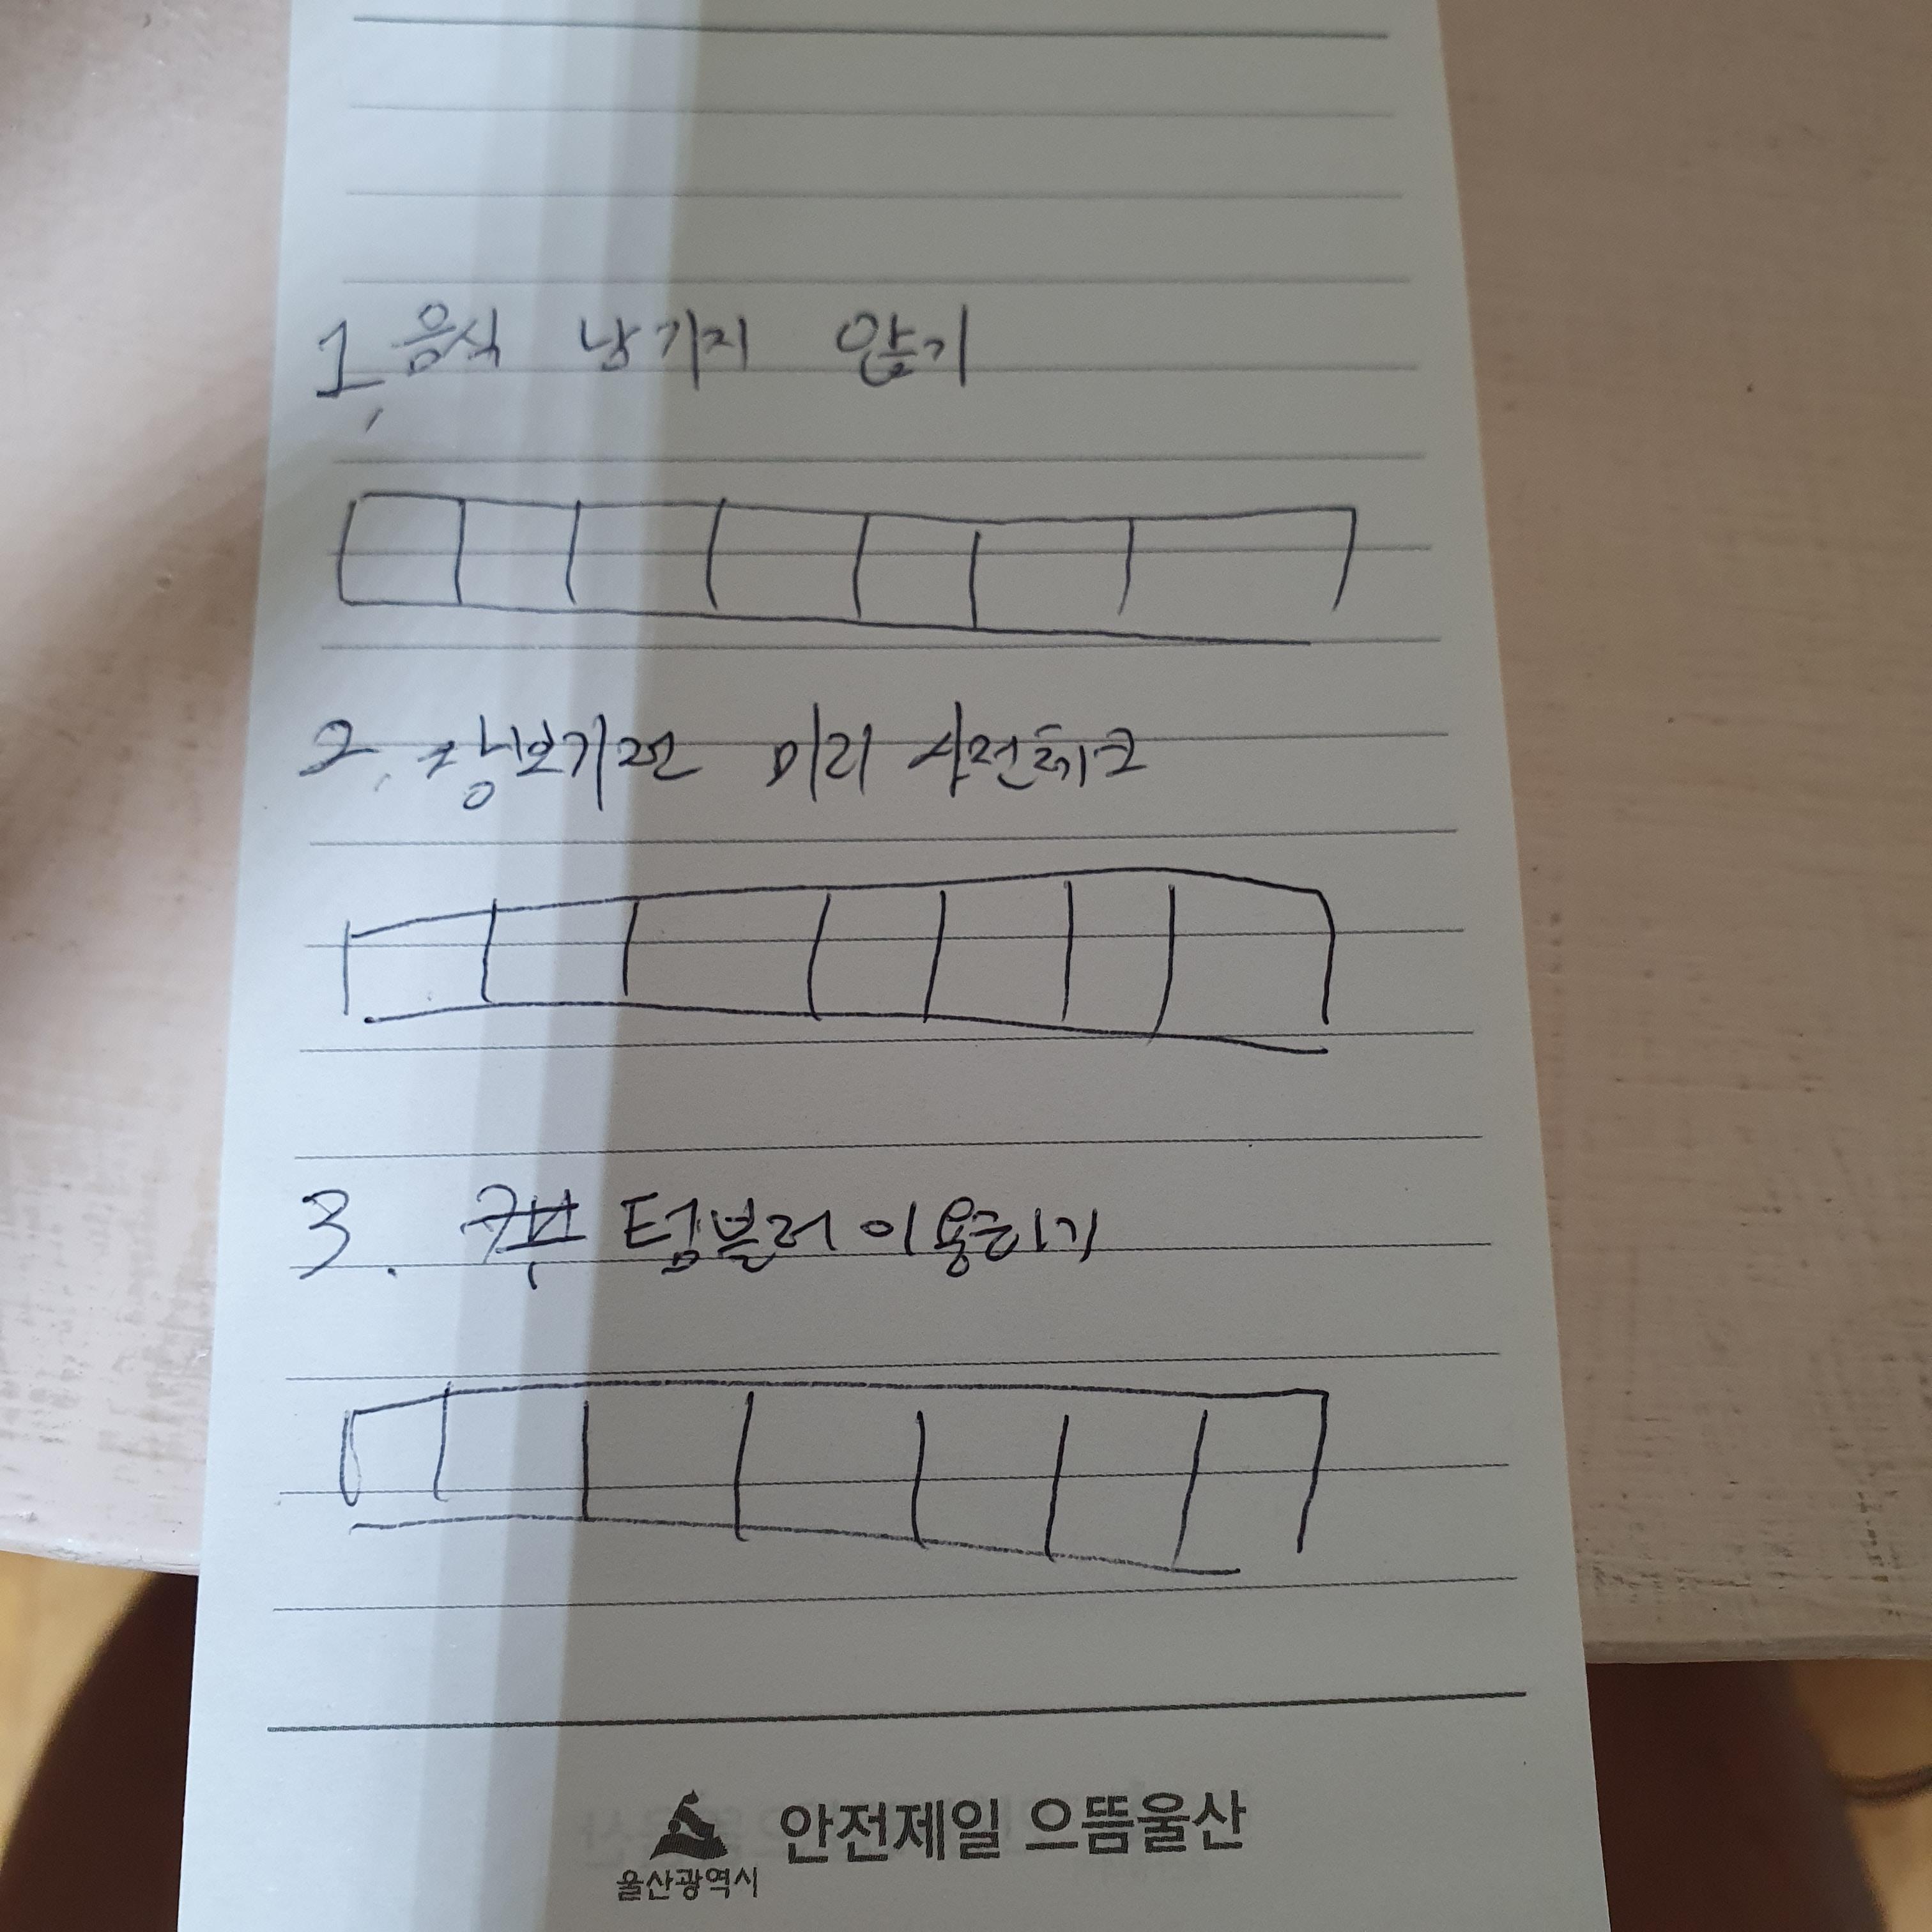 1. 음식 남기지 않기
2. 장보기전 미리 사전체크
3. 텀블러 이용하기
안전제일 으뜸울산
울산광역시